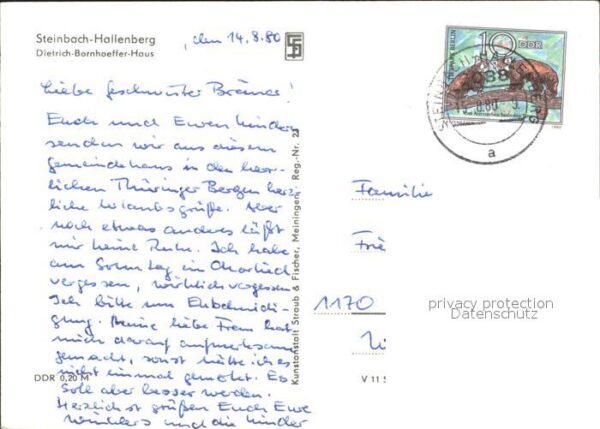 Steinbach-Hallenberg
Dietrich-Bornhoeffer-Haus
, den 14.8.80
Liebe Geschwister Brämer!
Euch und Euren Kindern
senden wir aus diesem
Gemeindehaus in den herr-
lichen Thüringer Bergen herz-
liche Urlaubsgrüße. Aber
noch etwas anderes läßt
mir keine Ruhe. Ich habe
am Sonntag in
vergessen, wirklich vergessen
Ich bitte um Entschuldi-
gung. Meine liebe Frau hat
mich darauf aufmerksam
gemacht, sonst hätte ich es
nicht einmal gemerkt. Es
soll aber besser werden.
Herzlichst grüßen Euch Eure
und die Kinder
DDR 0,20 M
Kunstanstalt Straub & Fischer, Meiningen Reg.-Nr. 23
V 11 5
10 DDR
TIERPARK BERLIN
STEINBACH-HALLENBERG
a
Familie
Frie
1170
privacy protection
Datenschutz